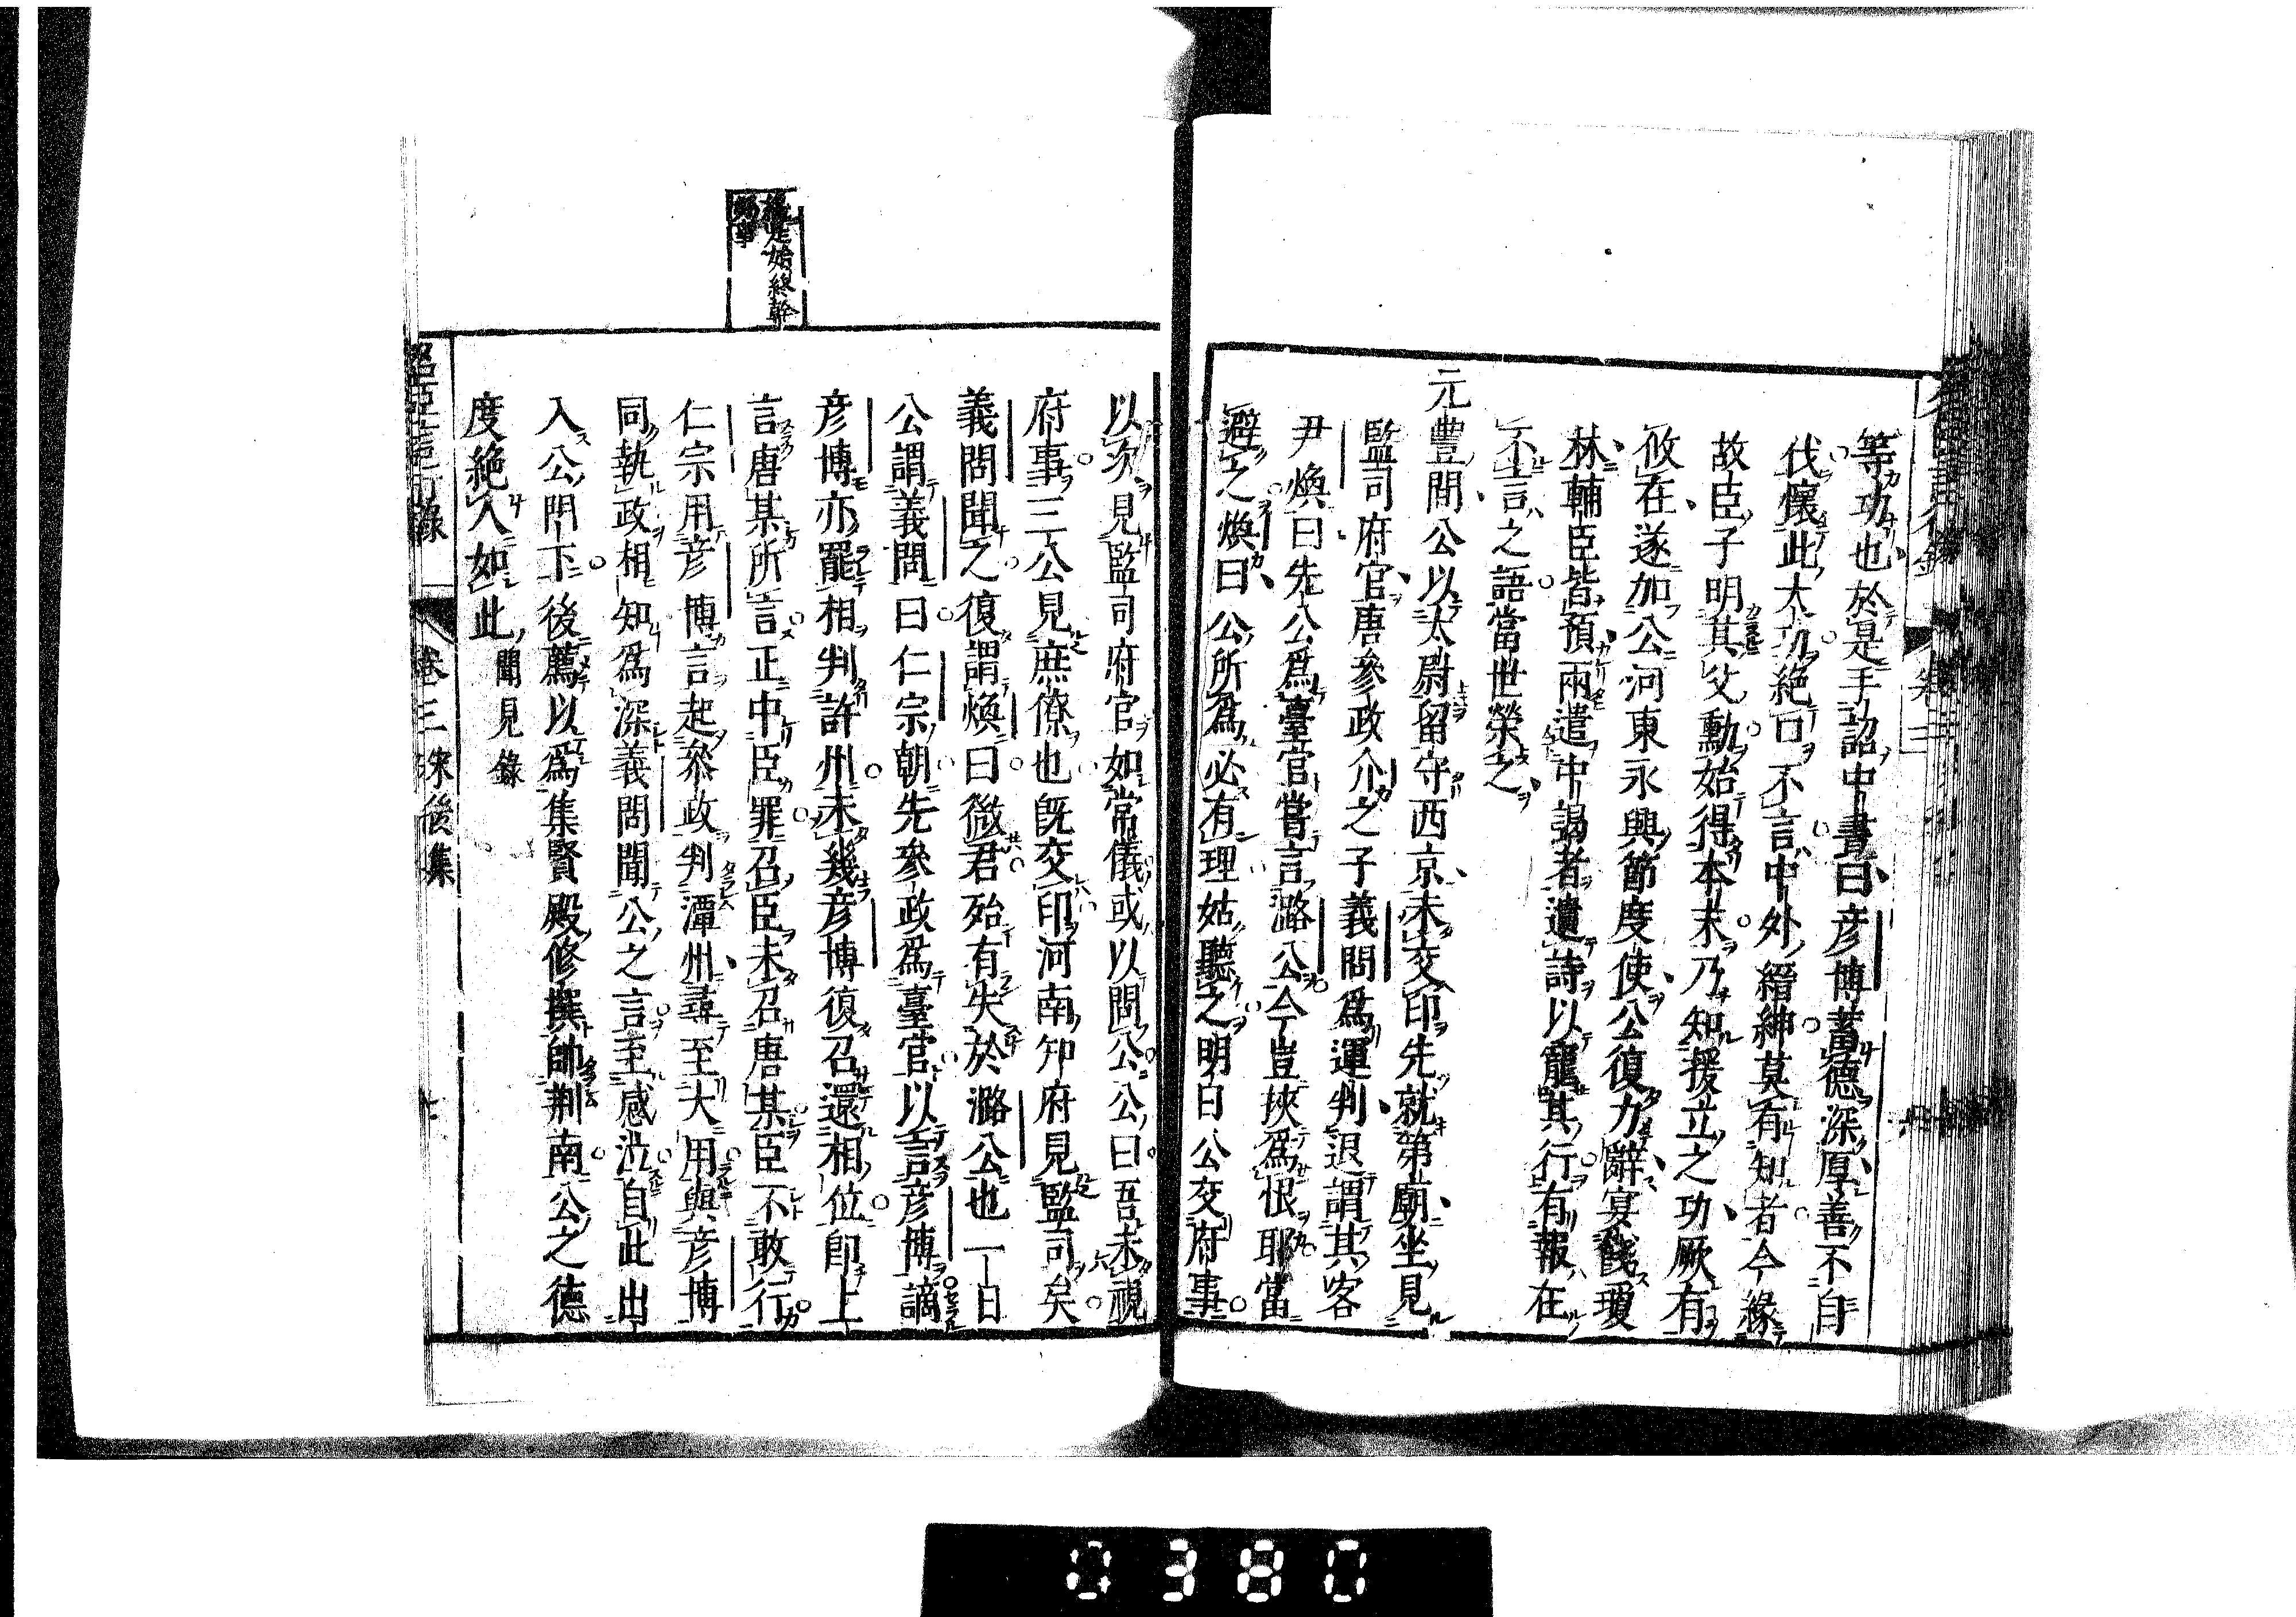 等功也於是手詔中書曰彥博蓄德深厚善不自
伐懷此大功絕口不言中外縉紳莫有知者今緣
故臣子明其父勳始得本末乃知援立之功厥有
攸在遂加公河東永興節度使公復力辭宴餞瓊
林輔臣皆預兩遣中謁者遺詩以寵其行有報在
不言之語當世榮之
元豐間公以太尉留守西京未交印先就第廟坐見
監司府官唐參政介之子義問爲運判退謂其客
尹煥曰先公爲臺官嘗言潞公今豈挾爲恨耶當
避之煥曰公所爲必有理姑聽之明日公交府事
以次見監司府官如常儀或以問公公曰吾未視
府事三公見庶僚也既交印河南知府見監司矣
義問聞之復謂煥曰微君殆有失於潞公也一日
公謂義問曰仁宗朝先參政爲臺官以言彥博謫
彥博亦罷相判許州未幾彥博復召還相位卽上
言唐某所言正中臣罪召臣未召唐某臣不敢行
仁宗用彥博言起參政判潭州尋至大用與彥博
同執政相知爲深義問聞公之言至感泣自此出
入公門下後薦以爲集賢殿修撰帥荆南公之德
度絕人如此 聞見錄
始終幹
事
卷三 宋後集
0380